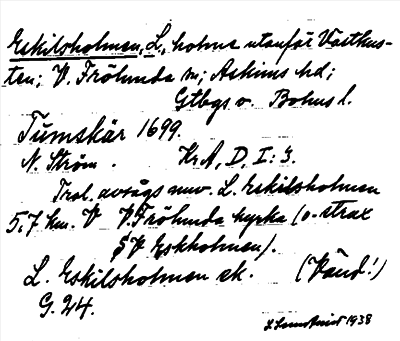 Eskilsholmen, L., holme utanför Västkus-
ten; V. Frölunda sn; Askims hd;
Gtbgs o. Bohus l.
Tumskär 1699.
N. Ström. KrA, D, I: 3.
Trol. avsågs nuv. L. Eskilsholmen
5,7 km. V V. Frölunda kyrka (o. strax
SV Eskholmen).
L. Eskilsholmen ek. (Vänd!)
G. 24.
1938